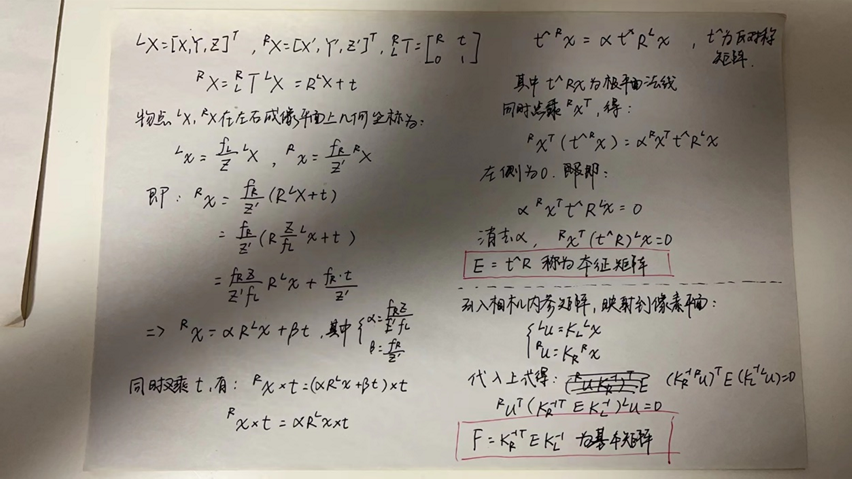 ᴸX=[X,Y,Z]ᵀ, ᴿX=[X',Y',Z']ᵀ, ᴿ_L T=[R t; 0 1]
ᴿX=ᴿ_L T ᴸX=RᴸX+t
物点ᴸX,ᴿX在左右成像平面上几何坐标为:
ᴸx=f_L/Z ᴸX, ᴿx=f_R/Z' ᴿX
即: ᴿx=f_R/Z' (RᴸX+t)
=f_R/Z' (R Z/f_L ᴸx+t)
=f_R Z/Z'f_L RᴸX+f_R·t/Z'
=> ᴿx=αRᴸx+βt, 其中{α=f_R Z/Z'f_L
β=f_R/Z'
同时叉乘t,有: ᴿx×t=(αRᴸx+βt)×t
ᴿx×t=αRᴸx×t
t^ᴿx=αt^Rᴸx, t^为反对称
矩阵.
其中t^ᴿx为极平面法线
同时点乘ᴿxᵀ,得:
ᴿxᵀ(t^ᴿx)=αᴿxᵀt^Rᴸx
左侧为0. 即:
αᴿxᵀt^Rᴸx=0
消去α, ᴿxᵀ(t^R)ᴸx=0
E=t^R 称为本征矩阵
引入相机内参矩阵,映射到像素平面:
{ᴸu=K_L ᴸx
ᴿu=K_R ᴿx
代入上式得: (K_R⁻¹ ᴿu)ᵀE(K_L⁻¹ ᴸu)=0
ᴿuᵀ(K_R⁻ᵀ E K_L⁻¹)ᴸu=0
F=K_R⁻ᵀ E K_L⁻¹ 为基本矩阵